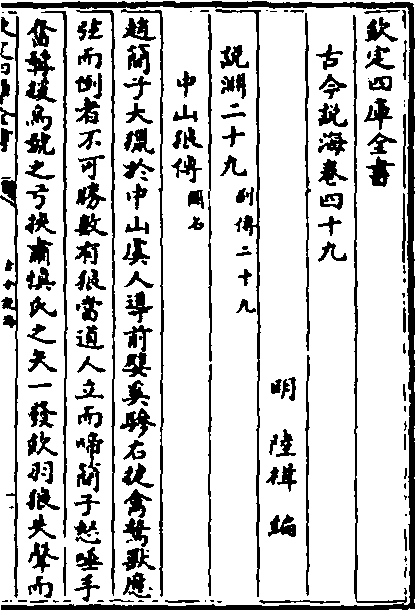 欽定四庫全書
古今說海卷四十九
明 陸楫 編
說淵二十九 別傳二十九
中山狼傳 闕名
趙簡子大獵於中山虞人導前嬖奚驂右捷禽鷙獸應
弦而倒者不可勝數有狼當道人立而啼簡子怒唾手
奮髯援烏號之弓挾肅慎氏之矢一發飲羽狼失聲而
欽定四庫全書
古今說海